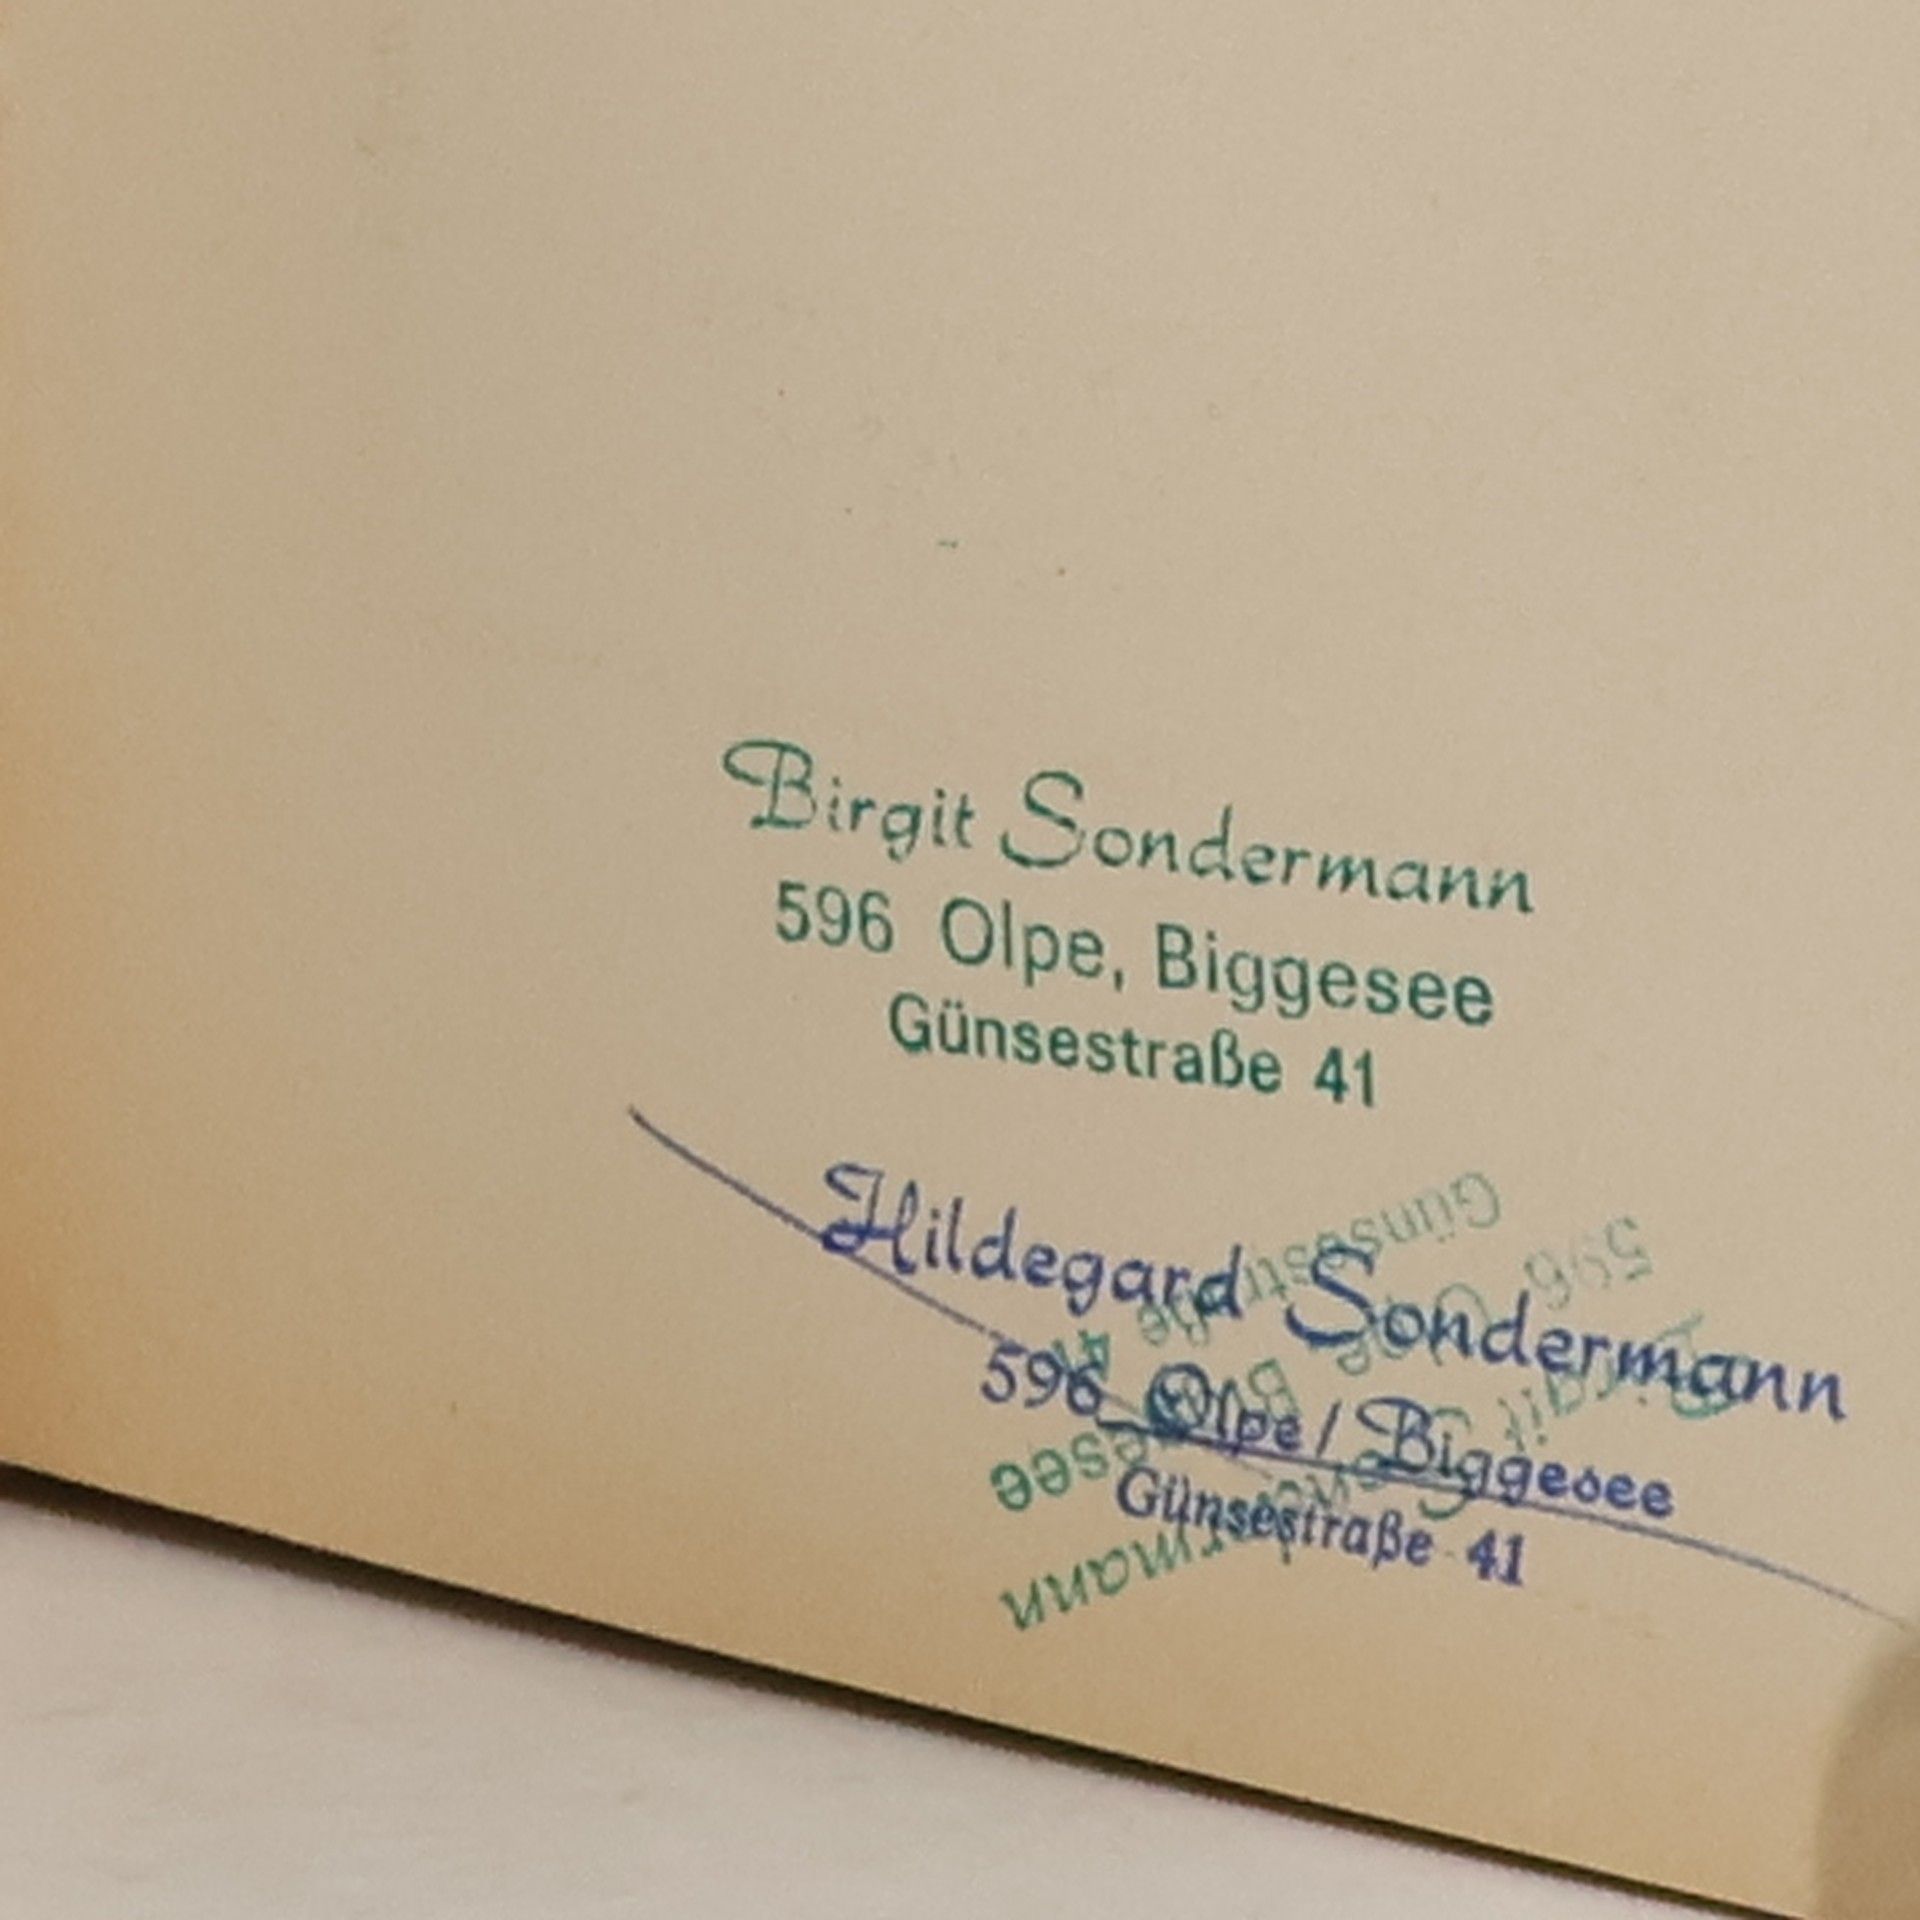 Birgit Sondermann
596 Olpe, Biggesee
Günsestraße 41
Hildegard Sondermann
596 Olpe / Biggesee
Günsestraße 41
Birgit Sondermann
596 Olpe, Biggesee
Günsestraße 41